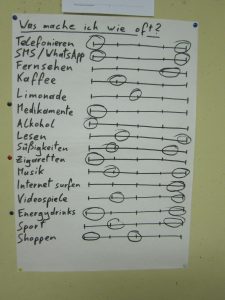 Was mache ich wie oft?
Telefonieren
SMS/WhatsApp
Fernsehen
Kaffee
Limonade
Medikamente
Alkohol
Lesen
Süßigkeiten
Zigaretten
Musik
Internet surfen
Videospiele
Energydrinks
Sport
Shoppen